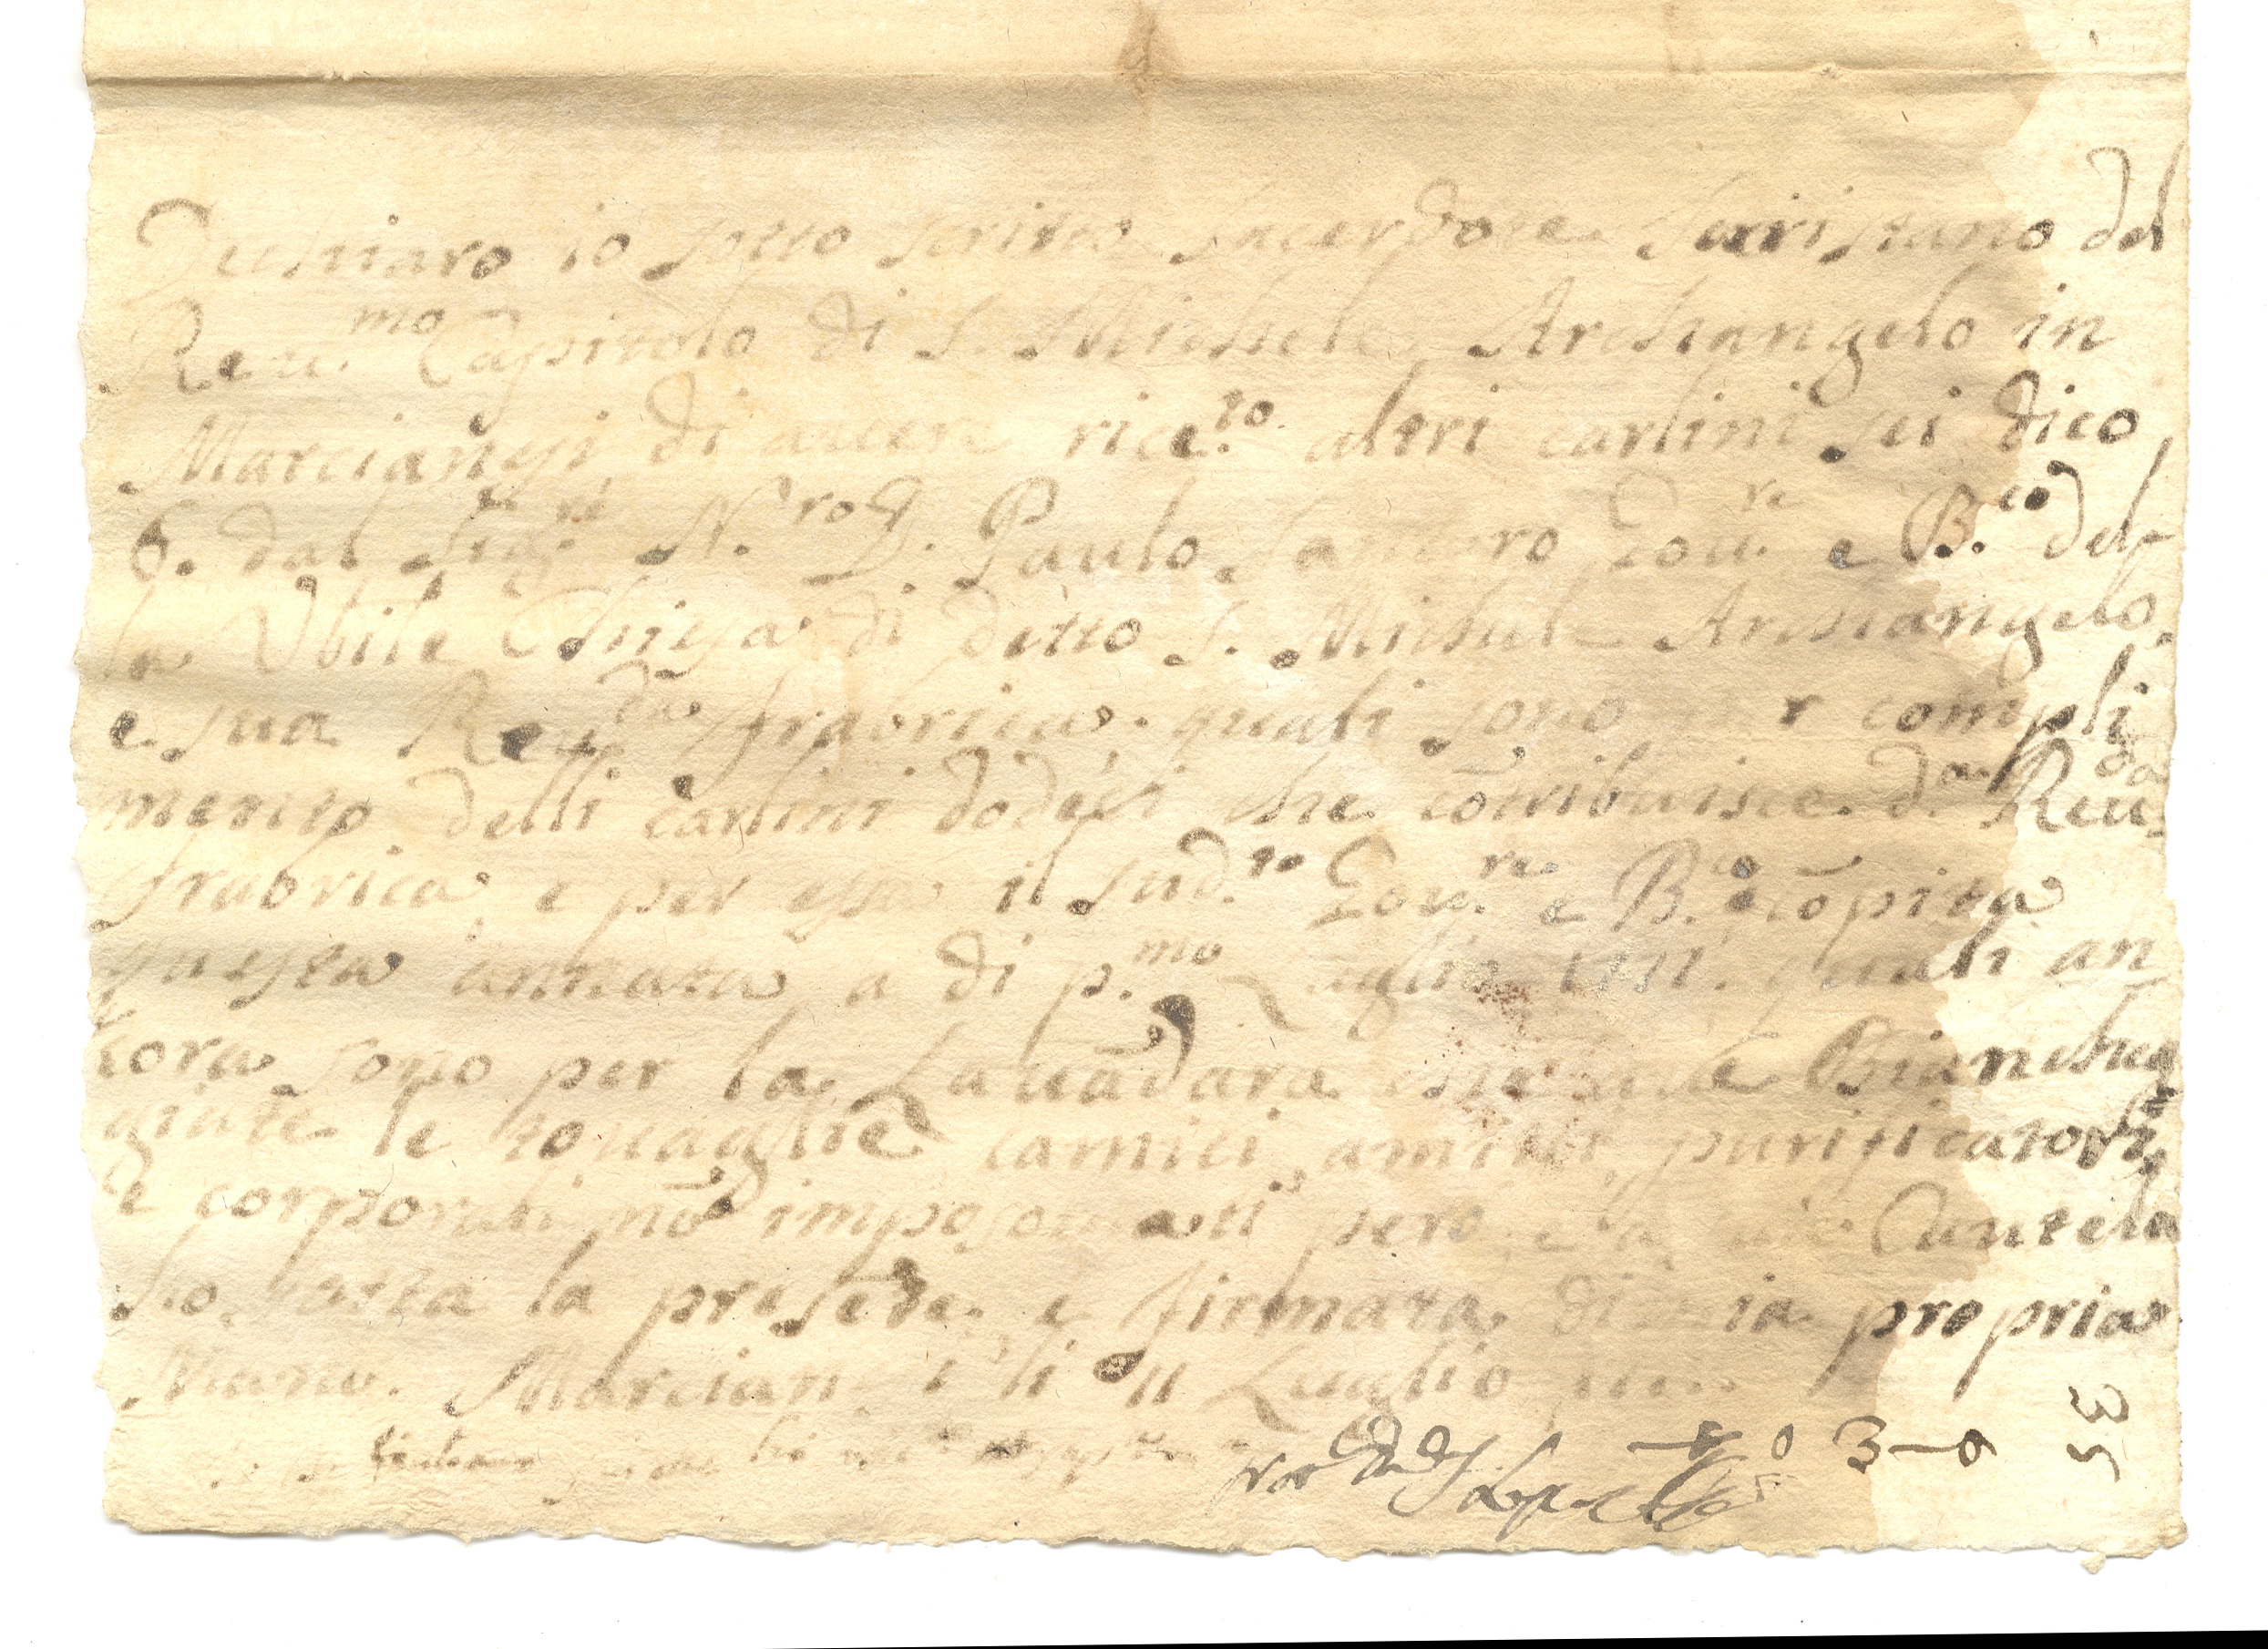 Dechiaro io sotto scritto Sacerdote Sacristano del
Reu.mo Capitolo di S. Michele Archiangelo in
Marcianesi di auere rice.to altri carlini sei dico
6. dal Sig.re N.ro D. Paulo Gou.re e B.co del
la Vbile Chiesa di detto S. Michele Archiangelo
e sua Reu.da frabrica quali sono compli
mento delli carlini dodeci che cõtribuisce d.a Reu.da
frabrica, e per essa il sud.to Gou.re e B.co cõpita
questa annata a di p.mo Luglio quali an
cora sono per la Lauãdara Bianchea
giate le touaglie camici, amitti, purificatori,
e corporali nõ però e a Cautela
S. o. fatta la presẽte e firmata di mia propria
Mano. Marcianesi li 11 Luglio
3-0
33